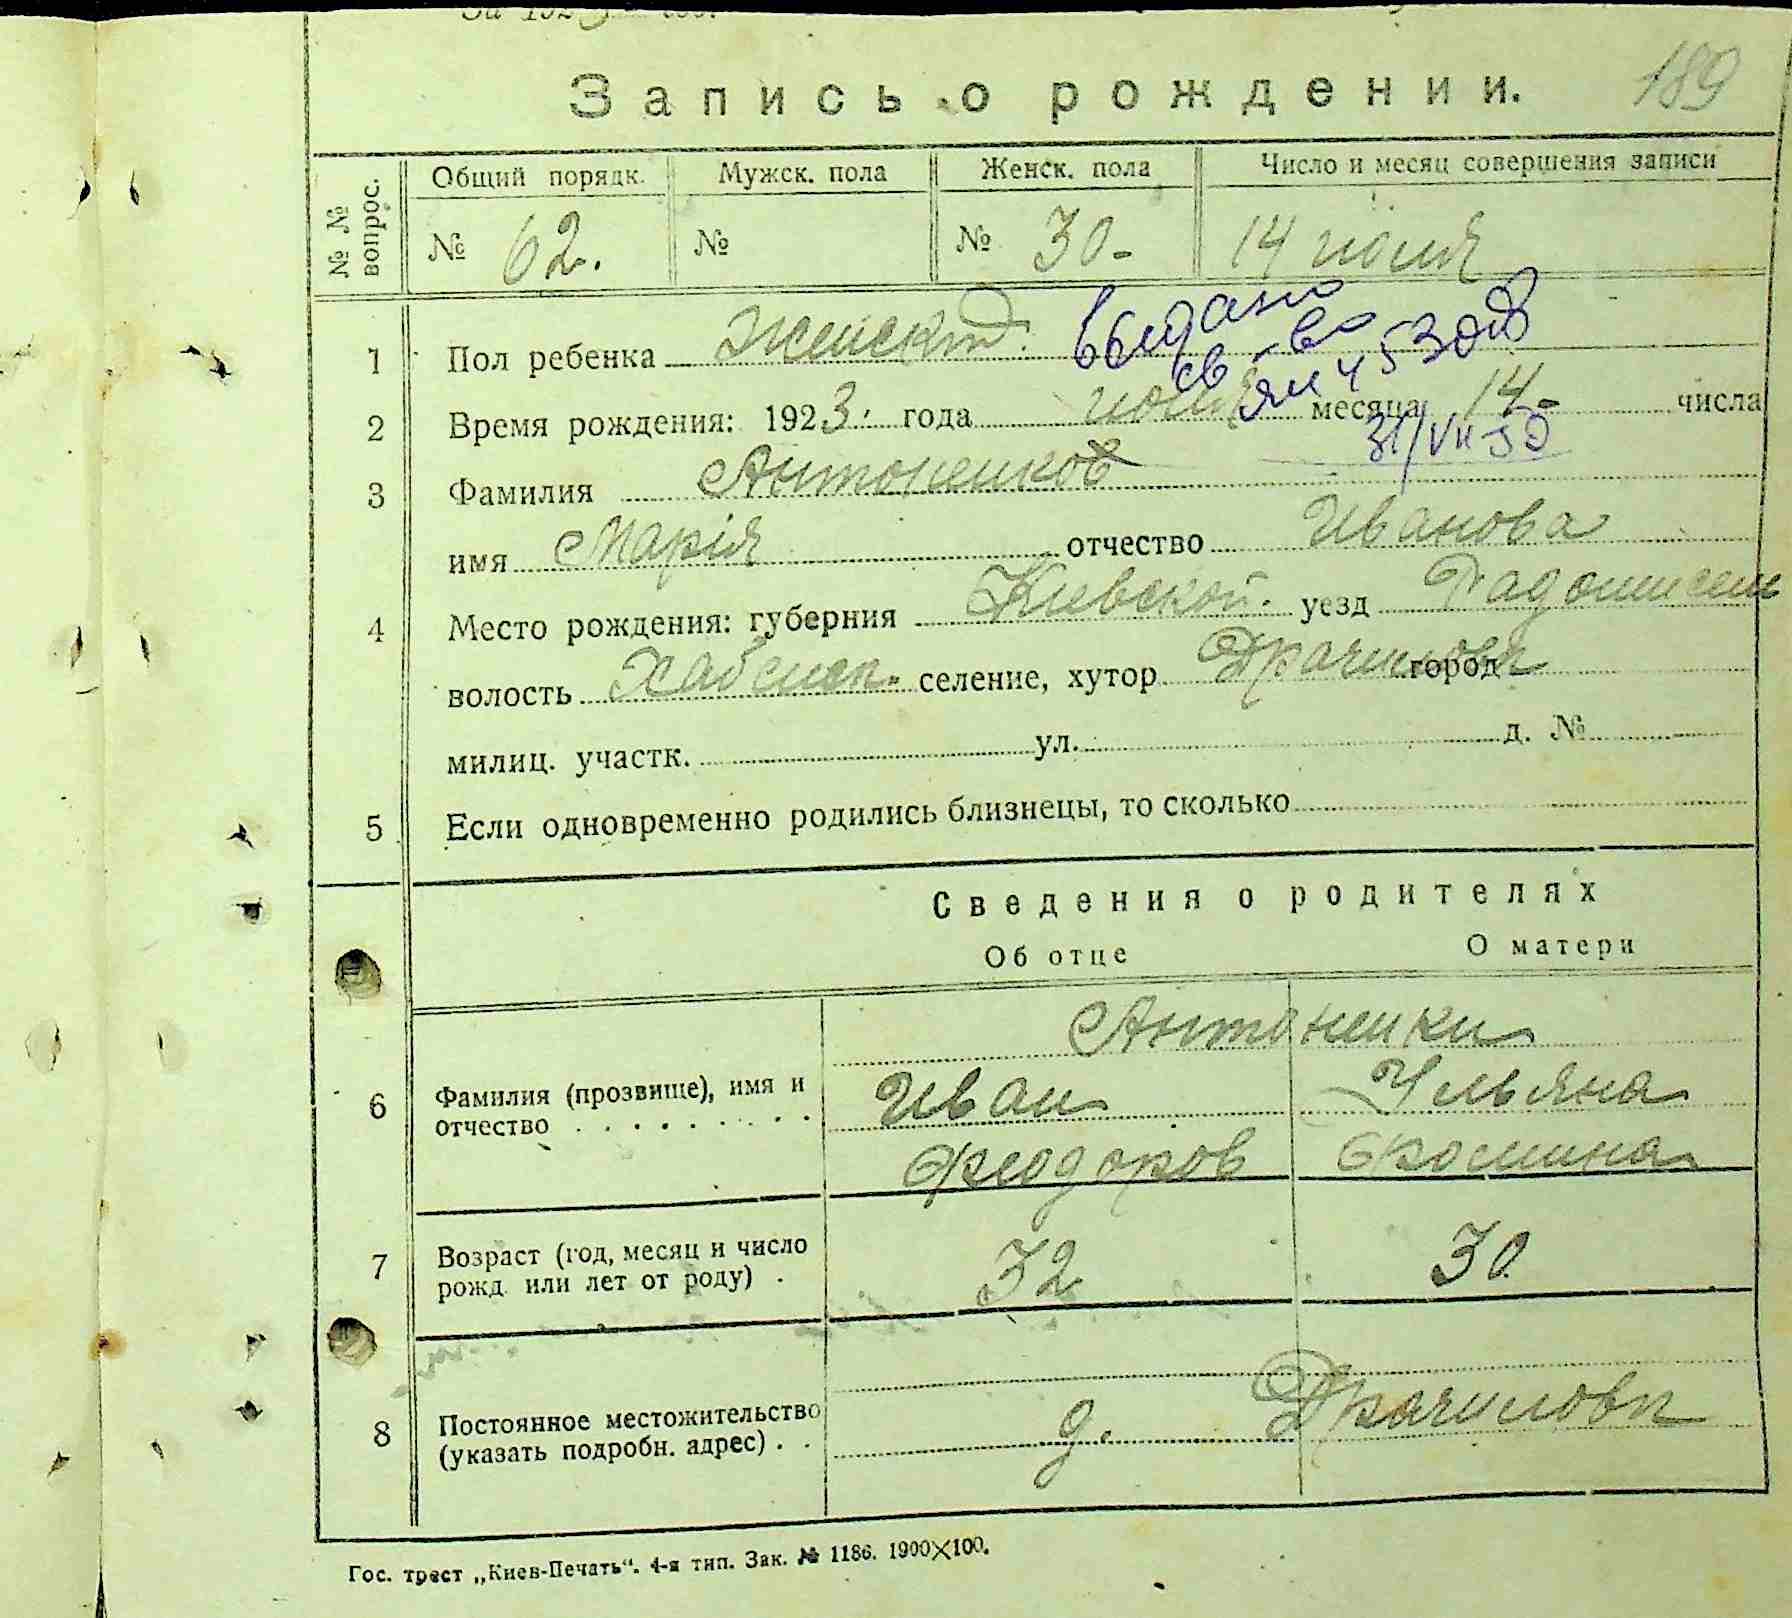 За 192
Запись о рождении. 189
№ № вопрос.
Общий порядк. Мужск. пола Женск. пола Число и месяц совершения записи
№ 62. № № 30- 14 июля
1 Пол ребенка Женский
выдано
св-во
ЯИ 453028
2 Время рождения: 1923. года июля месяца 14- числа
31/VII-50
3 Фамилия Антоненков
имя Марія отчество Иванова
4 Место рождения: губерния Киевской. уезд Радомисель
волость Хабенск. селение, хутор город
милиц. участк. ул. д. №
5 Если одновременно родились близнецы, то сколько
Сведения о родителях
Об отце О матери
Антоненки
6 Фамилия (прозвище), имя и отчество Иван Ульяна
Феодоров Фомина
7 Возраст (год, месяц и число рожд. или лет от роду) . 32 30
8 Постоянное местожительство (указать подробн. адрес) . . д.
Гос. трест „Киев-Печать“. 4-я тип. Зак. № 1186. 1900×100.